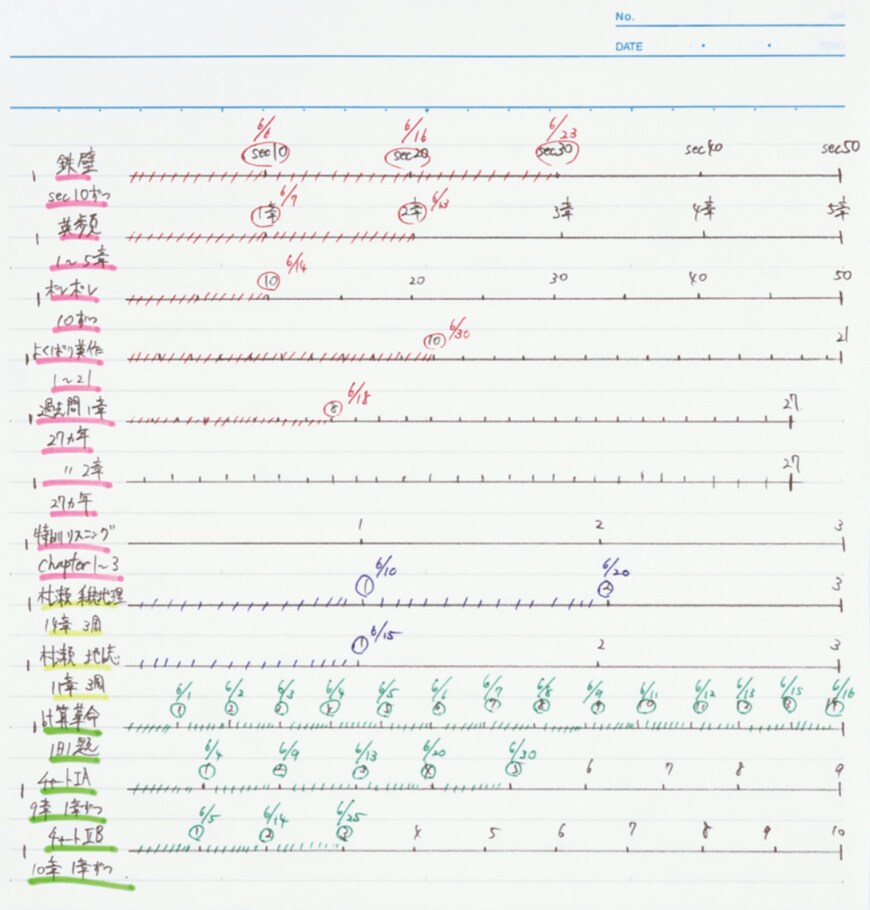 No.
DATE
6/6 6/16 6/23
鉄壁 sec10 sec20 sec30 sec40 sec50
sec10ずつ 6/7 6/13
英頻 1章 2章 3章 4章 5章
1〜5章 6/14
ポレポレ 10 20 30 40 50
10ずつ 6/30
よくばり英作 10 21
1〜21
6/18
過去問1章 8 27
27ヵ年
〃 2章 27
27ヵ年
特訓リスニング 1 2 3
Chapter1〜3 6/10 6/20
村瀬 系統地理 1 2 3
14章 3周 6/15
村瀬 地誌 1 2 3
11章 3周 6/1 6/2 6/3 6/4 6/5 6/6 6/7 6/8 6/9 6/11 6/12 6/13 6/15 6/16
計算革命 1 2 3 4 5 6 7 8 9 10 11 12 13 14
1日1題 6/4 6/9 6/13 6/20 6/30
チャートIA 1 2 3 4 5 6 7 8 9
9章 1章ずつ 6/5 6/14 6/25
チャートIIB 1 2 3 4 5 6 7 8 9 10
10章 1章ずつ